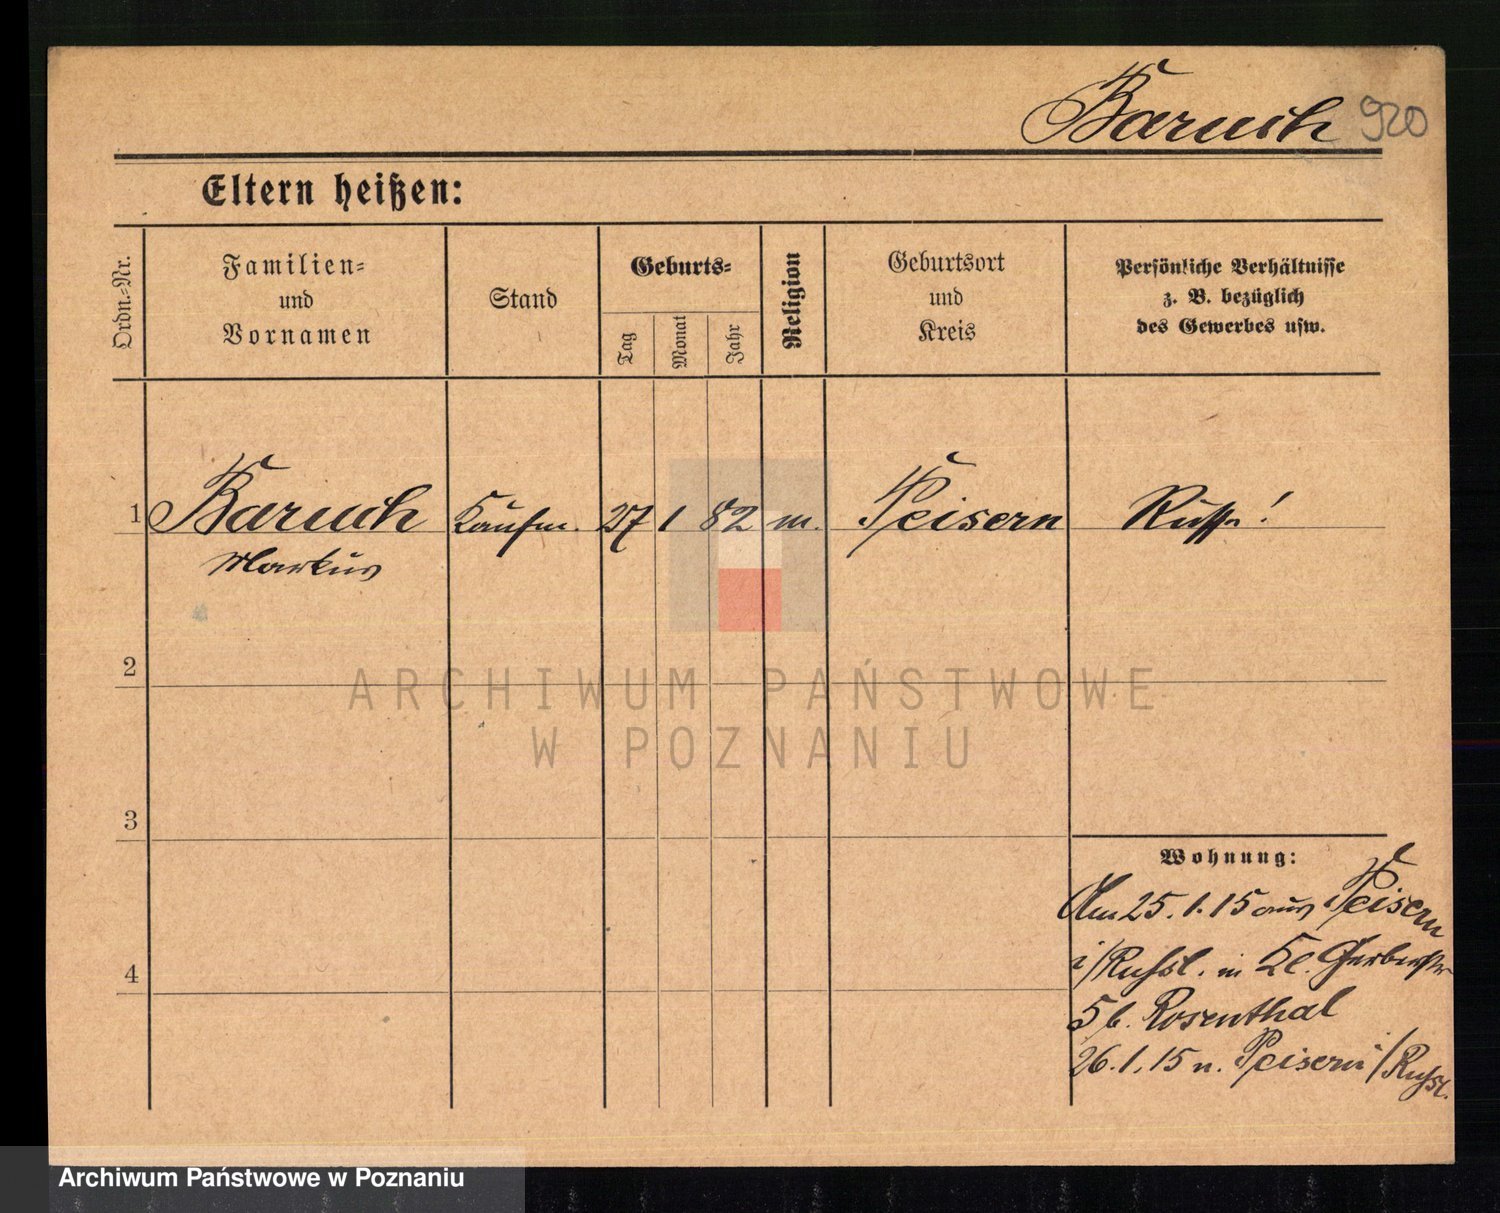 Baruch 920
Eltern heißen:
Ordn.-Nr.
Familien-
und
Vornamen
Stand
Geburts-
Tag
Monat
Jahr
Religion
Geburtsort
und
Kreis
Persönliche Verhältnisse
z. B. bezüglich
des Gewerbes usw.
1 Baruch Kaufm. 27 1 82 m. Peisern Russe!
Markus
2
ARCHIWUM PAŃSTWOWE
W POZNANIU
3
Wohnung:
Am 25.1.15 aus Peisern
i/Russl. in Kl. Gerberstr
4
5 b. Rosenthal
26.1.15 n. Peisern i/Russl.
Archiwum Państwowe w Poznaniu